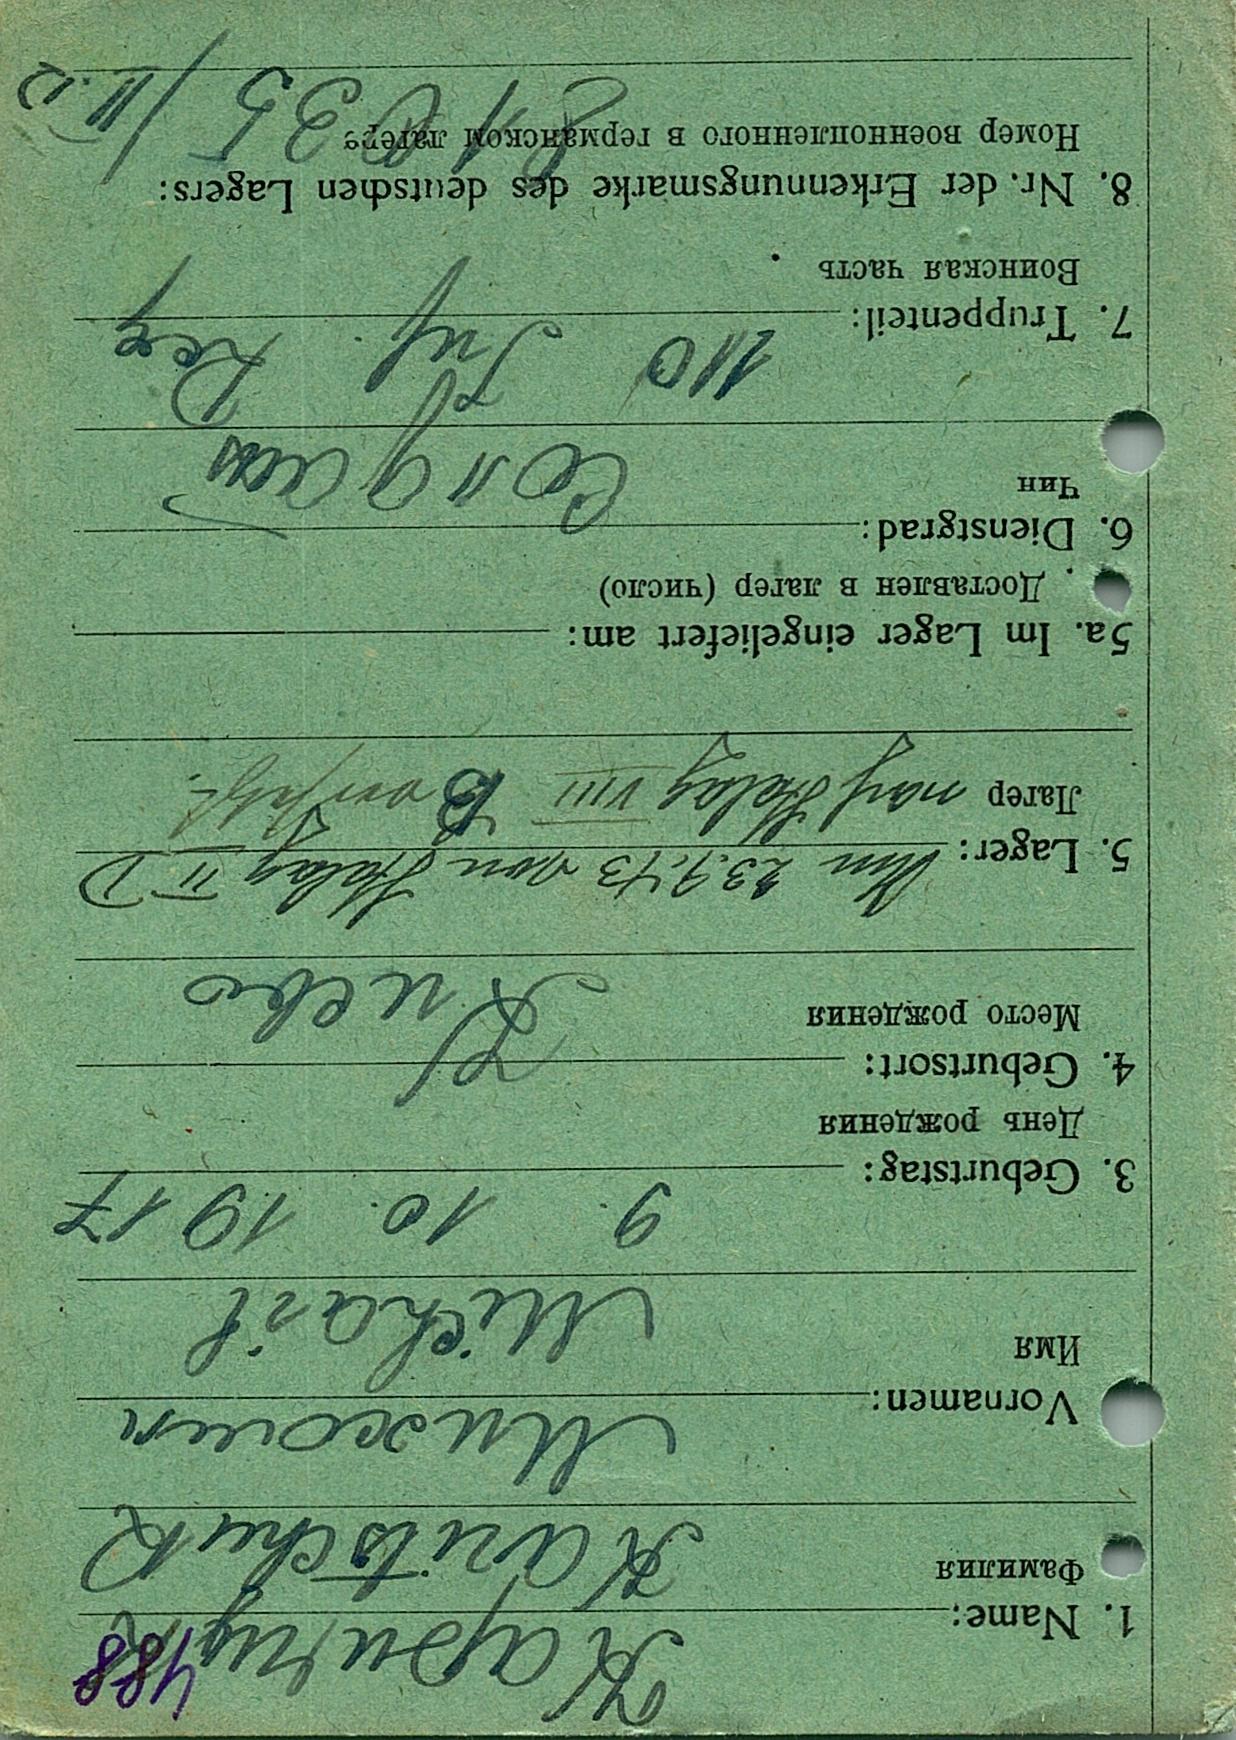 488
1. Name: Каричук
Фамилия Karitschuk
Vornamen: Михаил
Имя Michail
3. Geburtstag: 9. 10. 1917
День рождения
4. Geburtsort:
Место рождения Киев
5. Lager: Am 23.9.43 von Stalag II D
Лагер nach Stalag VIII B versetzt.
5a. Im Lager eingeliefert am:
Доставлен в лагер (число)
6. Dienstgrad:
Чин Солдат
7. Truppenteil: 110 Inf. Reg
Воинская часть
8. Nr. der Erkennungsmarke des deutschen Lagers:
Номер военнопленного в германском лагере 35 / II.D